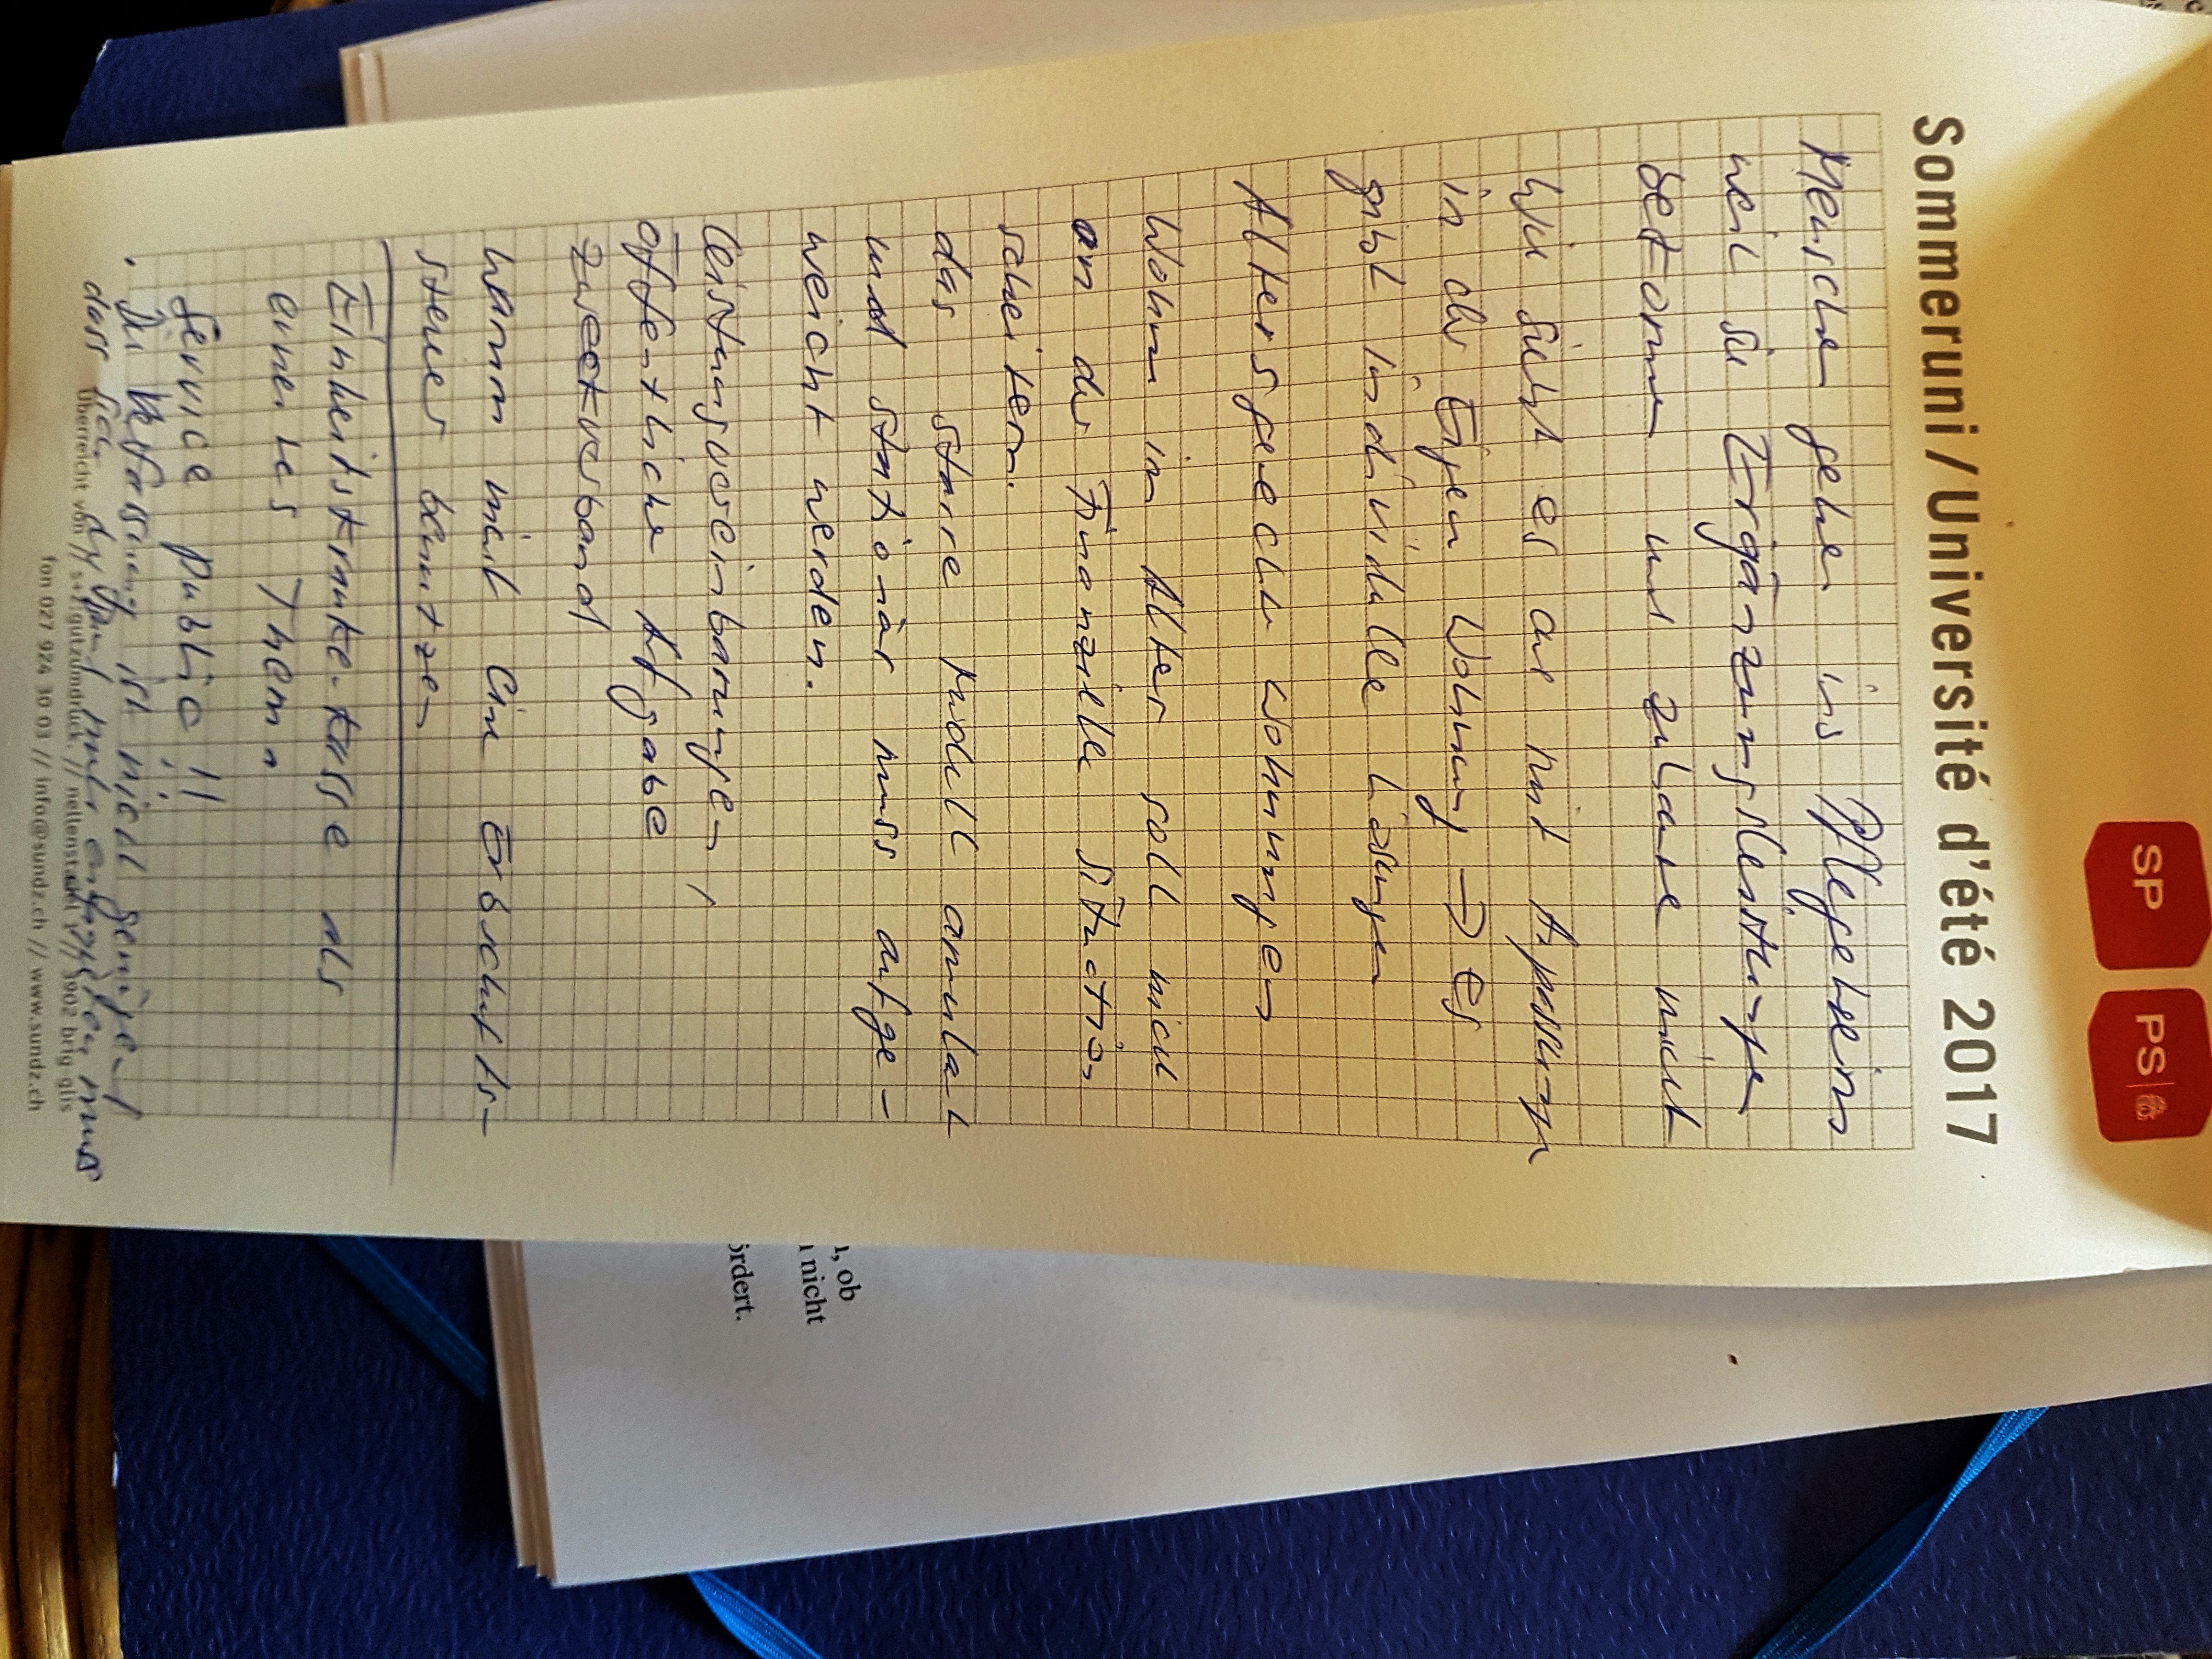 SP PS
Sommeruni / Université d'été 2017
Menschen gehen ins Pflegeheim
weil sie Ergänzungsleistungen
bekommen und zuhause nicht
Wie sieht es aus mit Anpassungen
in der Eigen Wohnung → es
gibt individuelle Lösungen
Altersgerechte Wohnungen
Wohnen im Alter soll nicht
an der Finanzielle Situation
scheitern.
das starre Modell ambulat
und stationär muss aufge-
weicht werden.
Leistungsvereinbarungen,
öffentliche Afgabe
zweckverband
warum nicht ein Erbschafts-
steuer benutzen
Einheitskrankenkasse als
erneutes Thema
Service public!!
. Die Verfassung ist nicht genügend
dass sich
überreicht von // s+z:gutzumdruck. // nellenstadel // 3902 brig-glis
fon 027 924 30 03 // info@sundz.ch // www.sundz.ch
, ob
nicht
ördert.